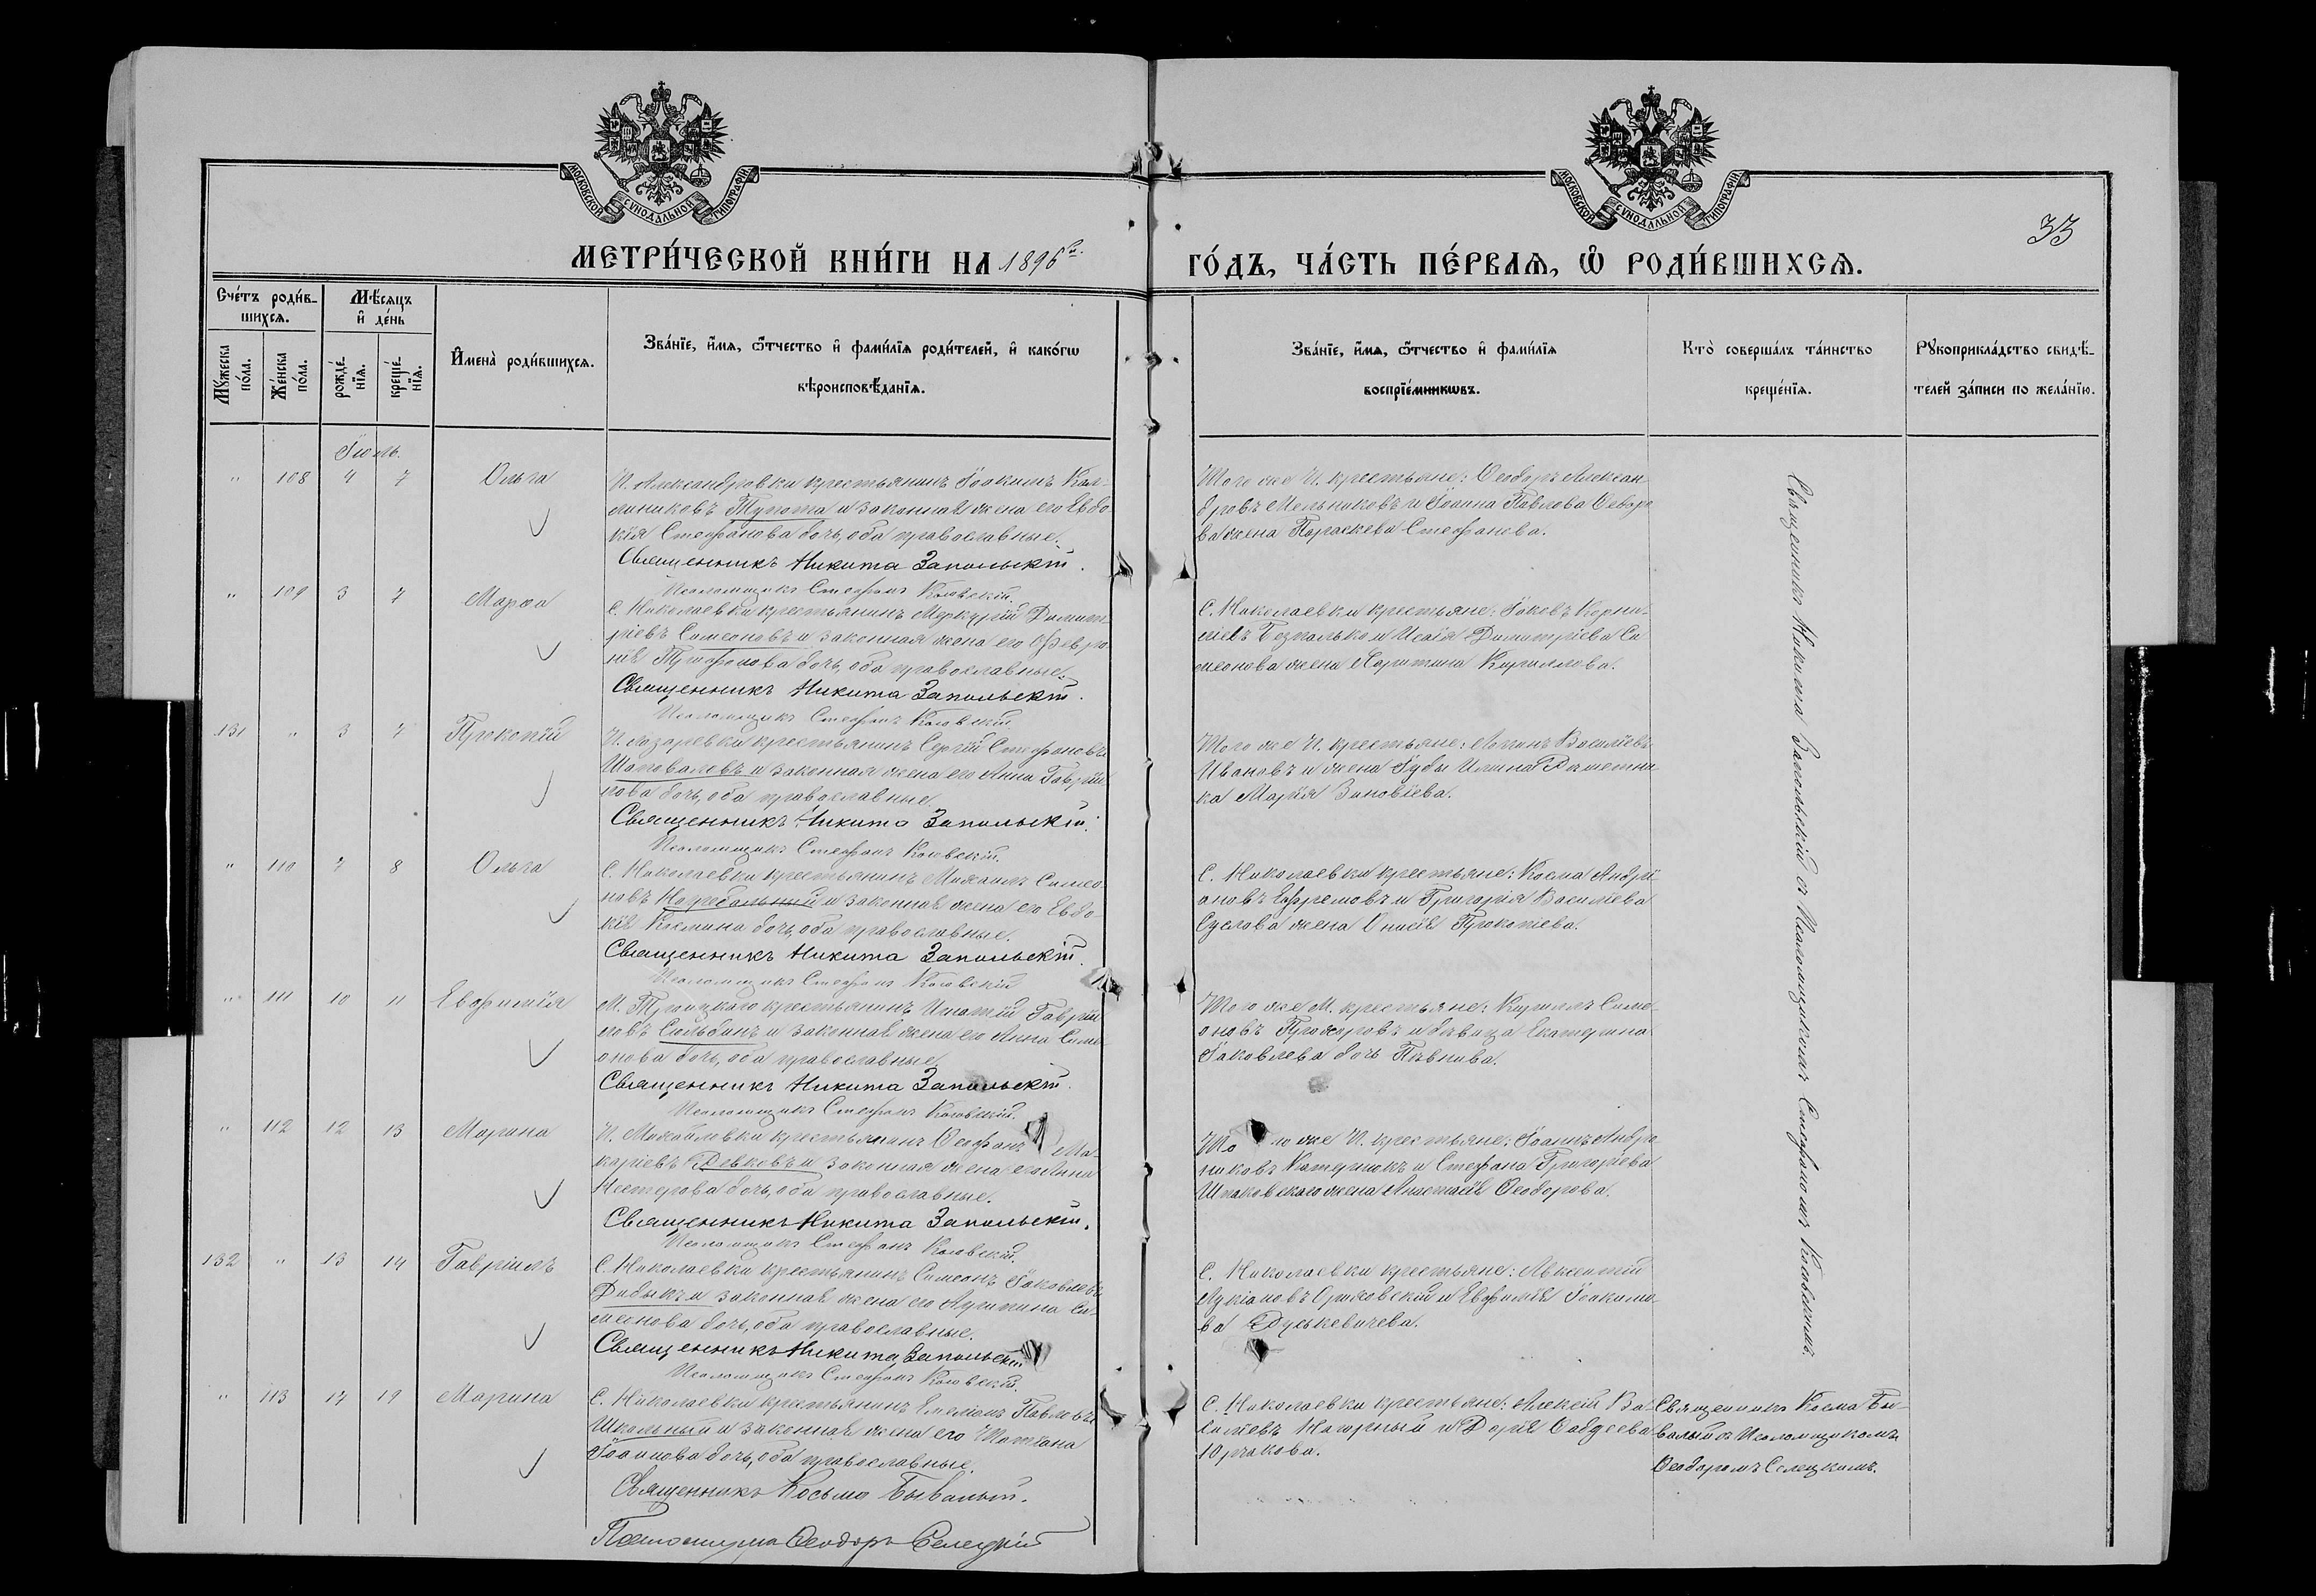 МОСКОВСКОЙ СѴНОДАЛЬНОЙ ТИПОГРАФІИ
МОСКОВСКОЙ СѴНОДАЛЬНОЙ ТИПОГРАФІИ
33
МЕТРИ́ЧЕСКОЙ КНИ́ГИ НА 1896й
ГО́ДЪ, ЧА́СТЬ ПЕ́РВАѦ, Ѡ РОДИ́ВШИХСѦ.
Сче́тъ роди́в-
шихсѧ.
Мꙋ́жеска по́ла.
Же́нска по́ла.
Мѣ́сяцъ
и҆ де́нь
рожде́нїѧ.
креще́нїѧ.
И҆мена̀ роди́вшихсѧ.
Зва́нїе, и҆́мѧ, ѻ҆́тчество и҆ фами́лїѧ роди́телей, и҆ како́гѡ
вѣроисповѣ́данїѧ.
Зва́нїе, и҆́мѧ, ѻ҆́тчество и҆ фами́лїѧ
воспрїе́мникѡвъ.
Кто̀ соверша́лъ та́инство
креще́нїѧ.
Рꙋкоприкла́дство свидѣ́-
телей за́писи по жела́нїю.
Іюль.
" 108 4 7 Ольга
П. Александровки крестьянинъ Іоакимъ Кал-
линиковъ Тупота и законная жена его Евдо-
кія Стефанова дочь, оба православные.
Священникъ Никита Запольскій.
Псаломщикъ Стефанъ
Того же П. крестьяне: Ѳеодоръ Алексан-
дровъ Мельниковъ и Іоанна Павлова
жена Параскева Стефанова.
" 109 3 7 Марѳа
С. Николаевки крестьянинъ Меркурій Димит-
ріевъ Симеоновъ и законная жена его Февро-
нія Трифонова дочь, оба православные.
Священникъ Никита Запольскій.
Псаломщикъ Стефанъ
С. Николаевки крестьяне: Іаковъ Корни-
ліевъ Безпалько и Исаія Димитріева Си-
меонова жена Харитина Кириллова.
131 " 3 7 Прокопій
П. Лазаревки крестьянинъ Сергій Стефановъ
Шаповаловъ и законная жена его Анна Гаврі-
лова дочь, оба православные.
Священникъ Никита Запольскій.
Псаломщикъ Стефанъ
Того же П. крестьяне: Василіевъ
Ивановъ и жена
Марія Зиновіева.
" 110 7 8 Ольга
С. Николаевки крестьянинъ Михаилъ Симео-
новъ и законная жена его Евдо-
кія Космина дочь, оба православные.
Священникъ Никита Запольскій.
Псаломщикъ Стефанъ
С. Николаевки крестьяне: Косма Андрі-
ановъ Ефремовъ и Григорія Василіева
Суслова жена Онисія Прокопіева.
" 111 10 11 Евфимія
М. Троицкаго крестьянинъ Игнатій Гаврі-
ловъ и законная жена его Анна Симе-
онова дочь, оба православные.
Священникъ Никита Запольскій.
Псаломщикъ Стефанъ
Того же М. крестьяне: Кириллъ Симе-
оновъ и дѣвица Екатерина
Іаковлева дочь Пѣвнива.
" 112 12 13 Марина
П. Михайловки крестьянинъ Ма-
каріевъ Девковъ и законная жена его Анна
Нестерова дочь, оба православные.
Священникъ Никита Запольскій.
Псаломщикъ Стефанъ
Того же П. крестьяне: Іоаннъ Андро-
никовъ и Стефана Григоріева
Шпаковскаго жена Анастасія Ѳеодорова.
132 " 13 14 Гавріилъ
С. Николаевки крестьянинъ Симеонъ Іаковлевъ
Дидыкъ и законная жена его Агрипина Си-
меонова дочь, оба православные.
Священникъ Никита Запольскій
Псаломщикъ Стефанъ
С. Николаевки крестьяне: Авксентій
Лукіановъ Оржовскій и Евфимія Іоакимо-
ва
" 113 17 19 Марина
С. Николаевки крестьянинъ Емеліанъ Павловъ
Школьный и законная жена его Татіана
Іоаннова дочь, оба православные.
Священникъ Косьма Бывалый.
Ѳеодоръ Селецкій
С. Николаевки крестьяне: Алексій Ва-
силіевъ Нагорный и Дарія
Юрчакова.
Священникъ Никита Запольскій съ Псаломщикомъ Стефаномъ
Священникъ Косма Бы-
валый съ Псаломщикомъ
Ѳеодоромъ Селецкимъ.